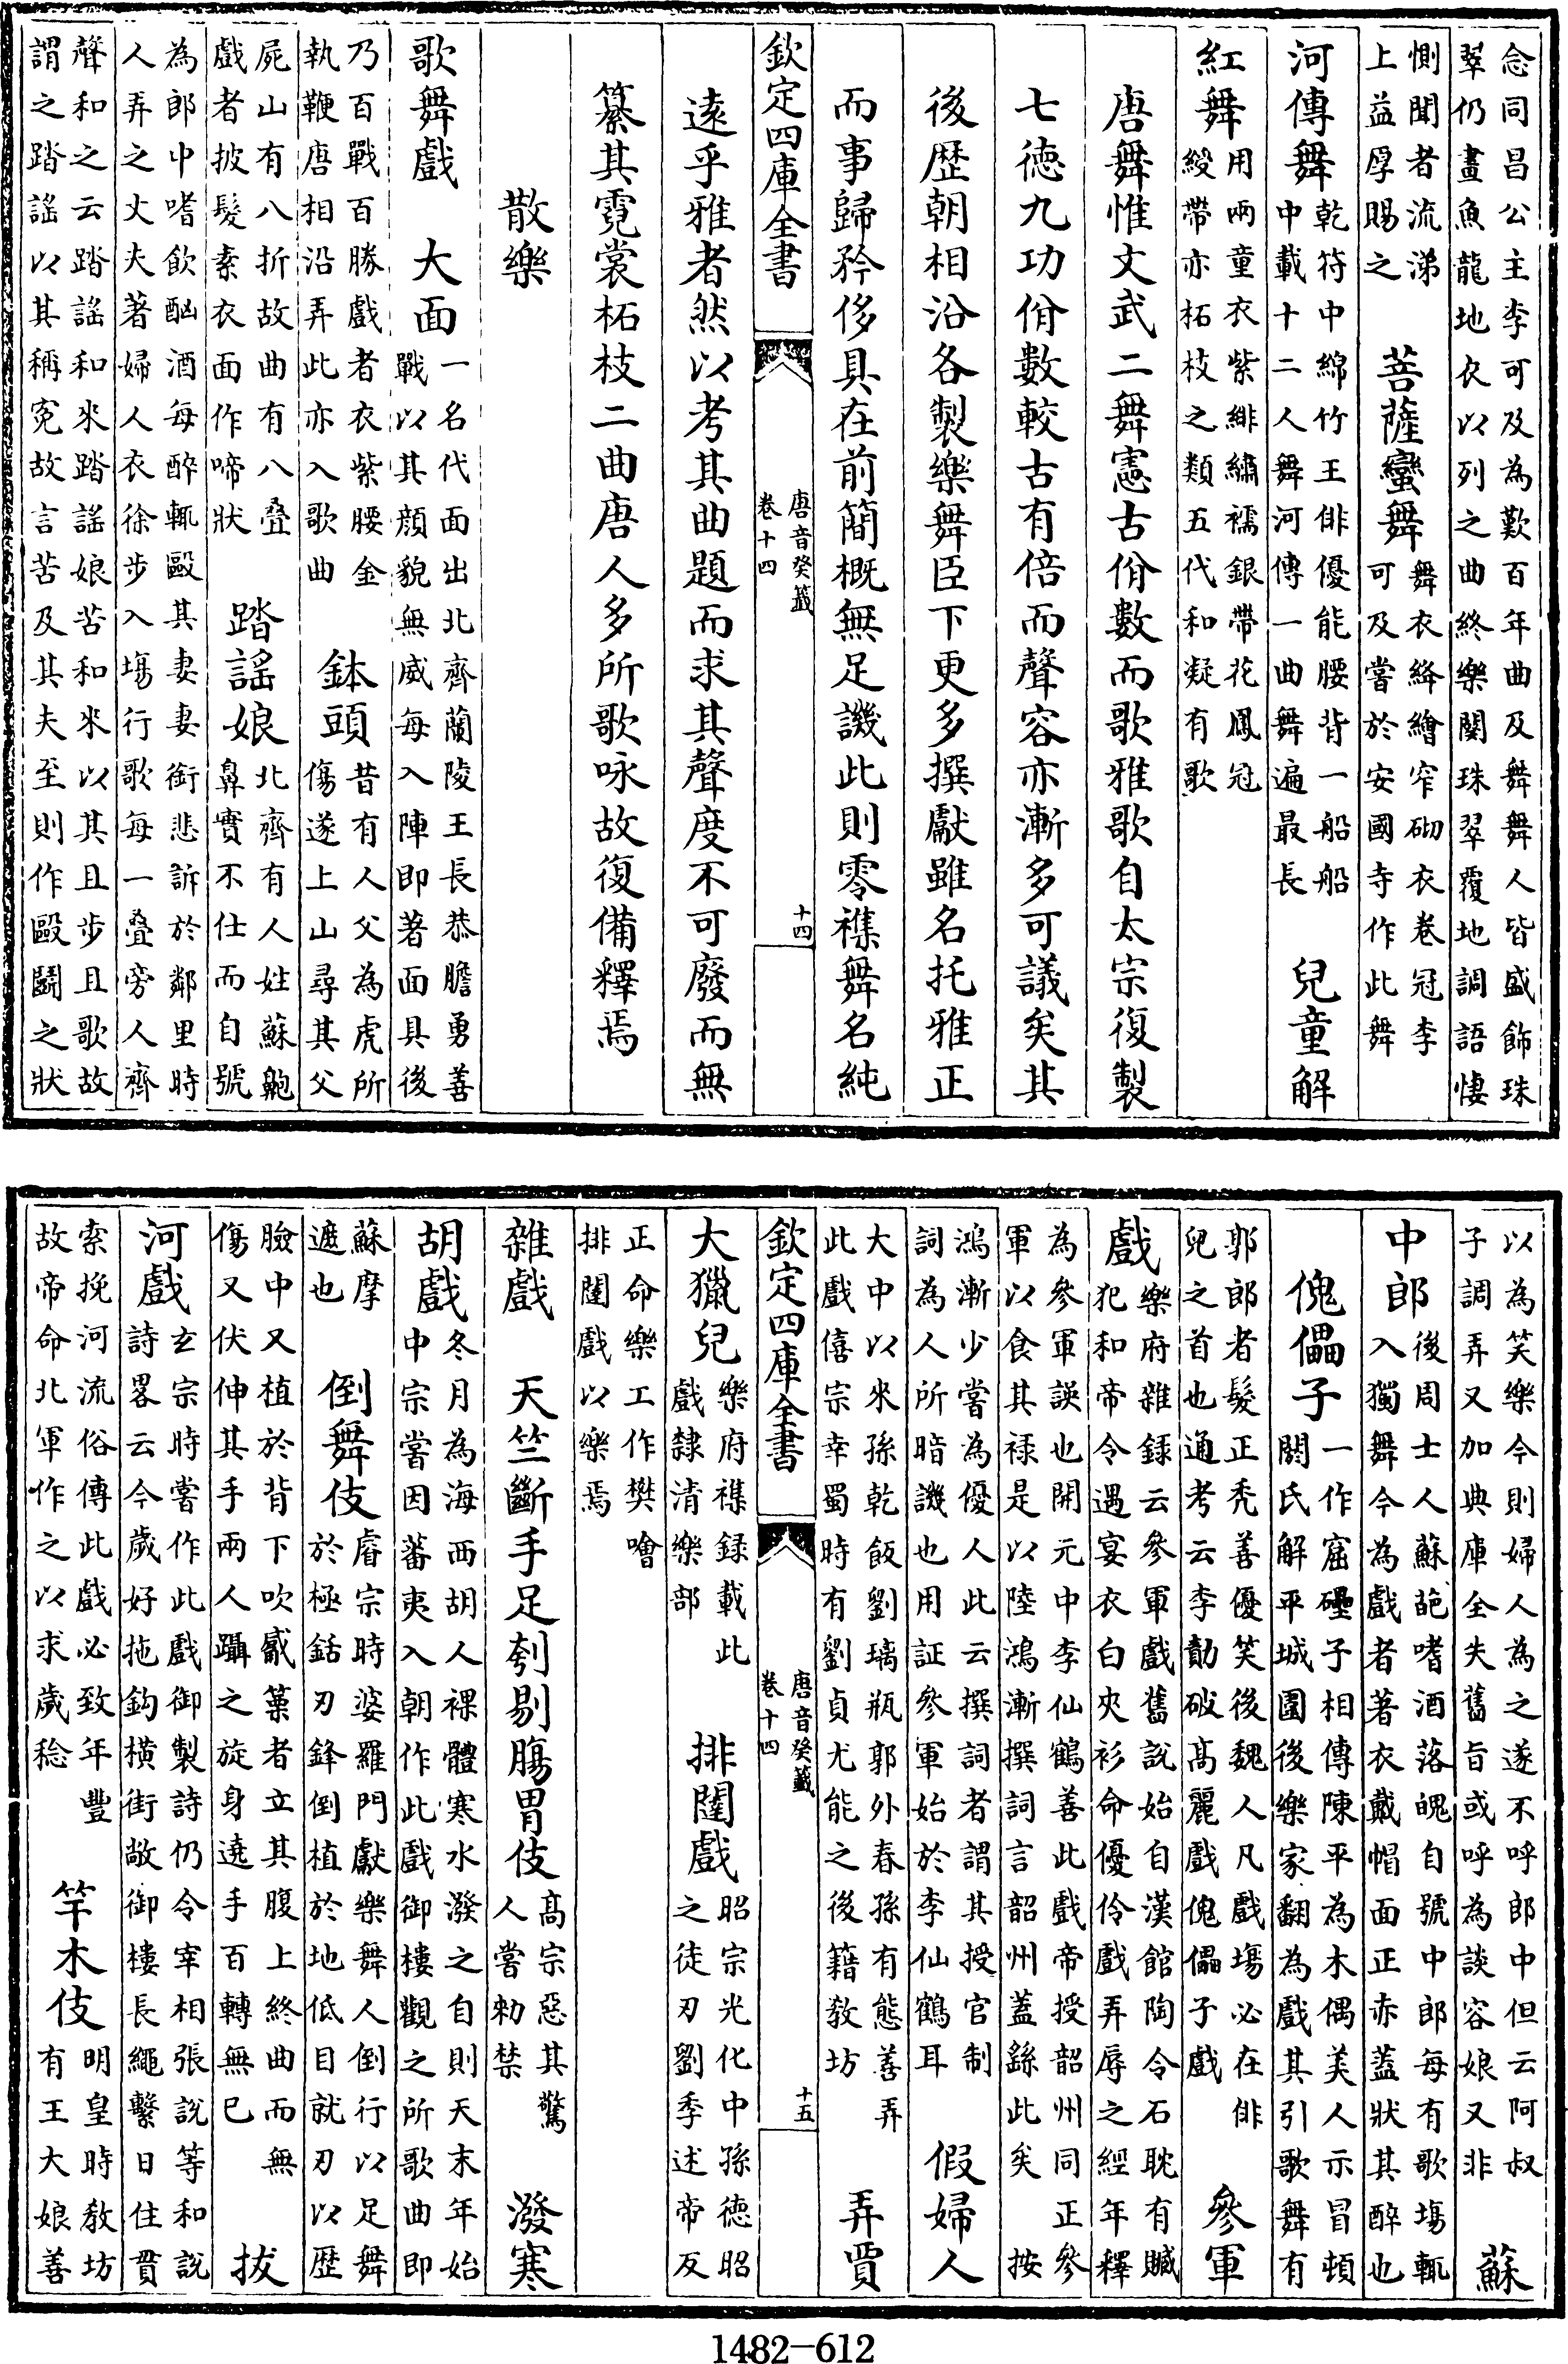 念同昌公主李可及為歎百年曲及舞舞人皆盛飾珠
翠仍畫魚龍地衣以列之曲終樂闋珠翠覆地調語悽
惻聞者流涕
上益厚賜之
菩薩蠻舞
舞衣絳繒窄砌衣卷冠李
可及嘗於安國寺作此舞
河傳舞
乾符中綿竹王俳優能腰背一船船
中載十二人舞河傳一曲舞遍最長
兒童解
紅舞
用兩童衣紫緋繡襦銀帶花鳳冠
綬帶亦柘枝之類五代和凝有歌
唐舞惟文武二舞憲古佾數而歌雅歌自太宗復製
七徳九功佾數較古有倍而聲容亦漸多可議矣其
後歴朝相沿各製樂舞臣下更多撰獻雖名托雅正
而事歸矜侈具在前簡概無足譏此則零襍舞名純
欽定四庫全書
唐音癸籤
卷十四
十四
逺乎雅者然以考其曲題而求其聲度不可廢而無
纂其霓裳柘枝二曲唐人多所歌咏故復備釋焉
散樂
歌舞戲 大面
一名代面出北齊蘭陵王長恭膽勇善
戰以其顔貌無威每入陣即著面具後
乃百戰百勝戲者衣紫腰金
執鞭唐相沿弄此亦入歌曲
鉢頭
昔有人父為虎所
傷遂上山尋其父
屍山有八折故曲有八疊
戲者披髮素衣面作啼狀
踏謡娘
北齊有人姓蘇䶌
鼻實不仕而自號
為郎中嗜飲酗酒每醉輒毆其妻妻銜悲訴於鄰里時
人弄之丈夫著婦人衣徐步入塲行歌每一疊旁人齊
聲和之云踏謡和來踏謡娘苦和來以其且步且歌故
謂之踏謡以其稱寃故言苦及其夫至則作毆鬭之狀
以為笑樂今則婦人為之遂不呼郎中但云阿叔
子調弄又加典庫全失舊旨或呼為談容娘又非
蘇
中郎
後周士人蘇葩嗜酒落魄自號中郎每有歌塲輒
入獨舞今為戲者著衣戴帽面正赤蓋狀其醉也
傀儡子
一作窟礧子相傳陳平為木偶美人示冒頓
閼氏解平城圍後樂家翻為戲其引歌舞有
郭郎者髮正禿善優笑後魏人凡戲塲必在俳
兒之首也通考云李勣破高麗戲傀儡子戲
參軍
戲
樂府雜録云參軍戲舊說始自漢館陶令石耽有贓
犯和帝令遇宴衣白夾衫命優伶戲弄辱之經年釋
為參軍誤也開元中李仙鶴善此戲帝授韶州同正參
軍以食其禄是以陸鴻漸撰詞言韶州蓋繇此矣 按
鴻漸少嘗為優人此云撰詞者謂其授官制
詞為人所暗譏也用証參軍始於李仙鶴耳
假婦人
大中以來孫乾飯劉璃瓶郭外春孫有態善弄
此戲僖宗幸蜀時有劉貞尤能之後籍教坊
弄賈
欽定四庫全書
唐音癸籤
卷十四
十五
大獵兒
樂府襍録載此
戲隸清樂部
排闥戲
昭宗光化中孫徳昭
之徒刃劉季述帝反
正命樂工作樊噲
排闥戲以樂焉
雜戲 天竺斷手足刳剔腸胃伎
高宗惡其驚
人嘗勅禁
潑寒
胡戲
冬月為海西胡人裸體寒水潑之自則天末年始
中宗嘗因蕃夷入朝作此戲御樓觀之所歌曲即
蘇摩
遮也
倒舞伎
睿宗時婆羅門獻樂舞人倒行以足舞
於極銛刃鋒倒植於地低目就刃以歴
臉中又植於背下吹觱篥者立其腹上終曲而無
傷又伏伸其手兩人躡之旋身遶手百轉無已
拔
河戲
玄宗時嘗作此戲御製詩仍令宰相張說等和說
詩畧云今歲好拖鈎横街敞御樓長繩繫日住貫
索挽河流俗傳此戲必致年豐
故帝命北軍作之以求歲稔
竿木伎
明皇時教坊
有王大娘善
1482-612